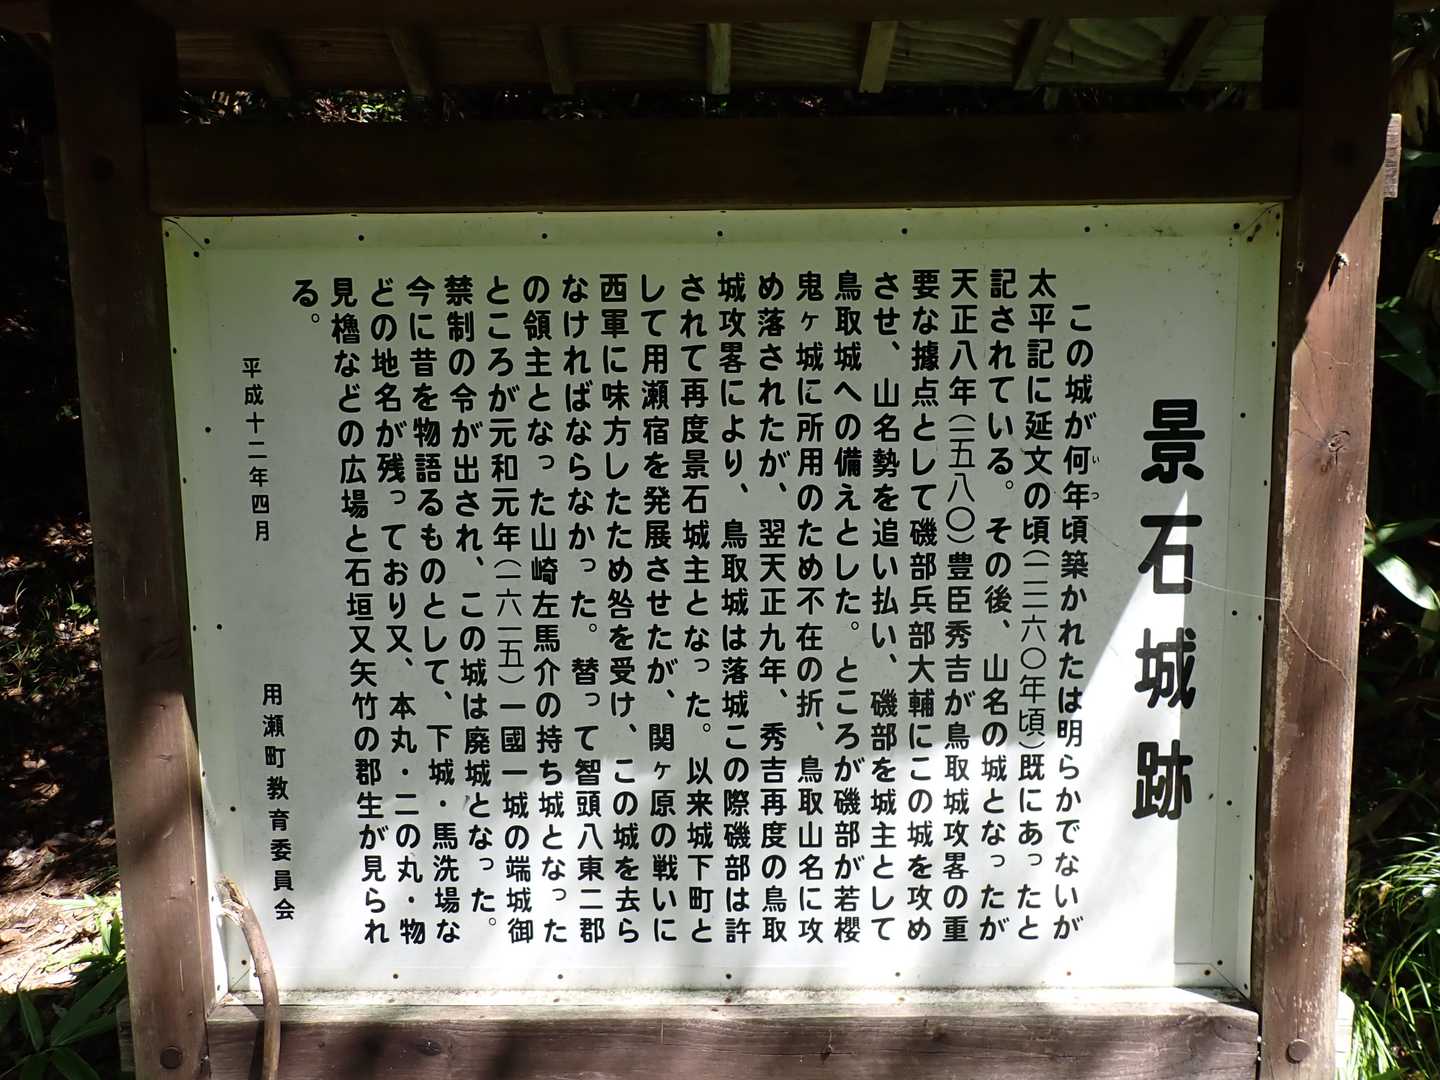 景石城跡
この城が何年頃築かれたは明らかでないが
いつ
太平記に延文の頃(一三六〇年頃)既にあったと
記されている。その後、山名の城となったが
天正八年(一五八〇)豊臣秀吉が鳥取城攻畧の重
要な據点として磯部兵部大輔にこの城を攻め
させ、山名勢を追い払い、磯部を城主として
鳥取城への備えとした。ところが磯部が若櫻
鬼ヶ城に所用のため不在の折、鳥取山名に攻
め落されたが、翌天正九年、秀吉再度の鳥取
城攻畧により、鳥取城は落城この際磯部は許
されて再度景石城主となった。以来城下町と
して用瀬宿を発展させたが、関ヶ原の戦いに
西軍に味方したため咎を受け、この城を去ら
なければならなかった。替って智頭八東二郡
の領主となった山崎左馬介の持ち城となった
ところが元和元年(一六一五)一國一城の端城御
禁制の令が出され、この城は廃城となった。
今に昔を物語るものとして、下城・馬洗場な
どの地名が残っており又、本丸・二の丸・物
見櫓などの広場と石垣又矢竹の郡生が見られ
る。
平成十二年四月
用瀬町教育委員会